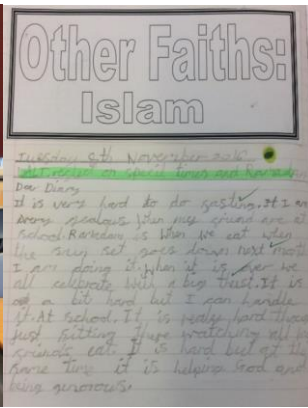 Other Faiths:
Islam
Tuesday 8th November 2016
I can reflect on special times and Ramadan
Dear Diary
It is very hard to do fasting. It I am
very gealous when my friend are at
school. Ramadam is when we eat when
the sun set goes down next month
I am doing it. When it is over we
all celebrate with a big feast. It is
a bit hard but I can handle
it. At school. It is really hard though
just sitting there watching all your
friends eat. It is hard but at the
same time it is helping God and
being generous.